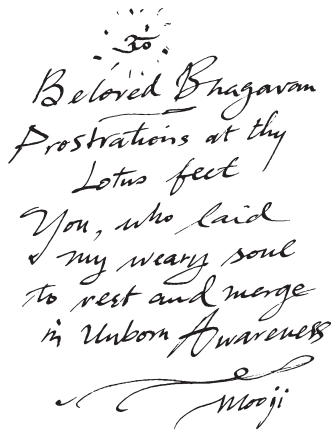 ॐ
Beloved Bhagavan
Prostrations at thy
Lotus feet
You, who laid
my weary soul
to rest and merge
in Unborn Awareness
Mooji